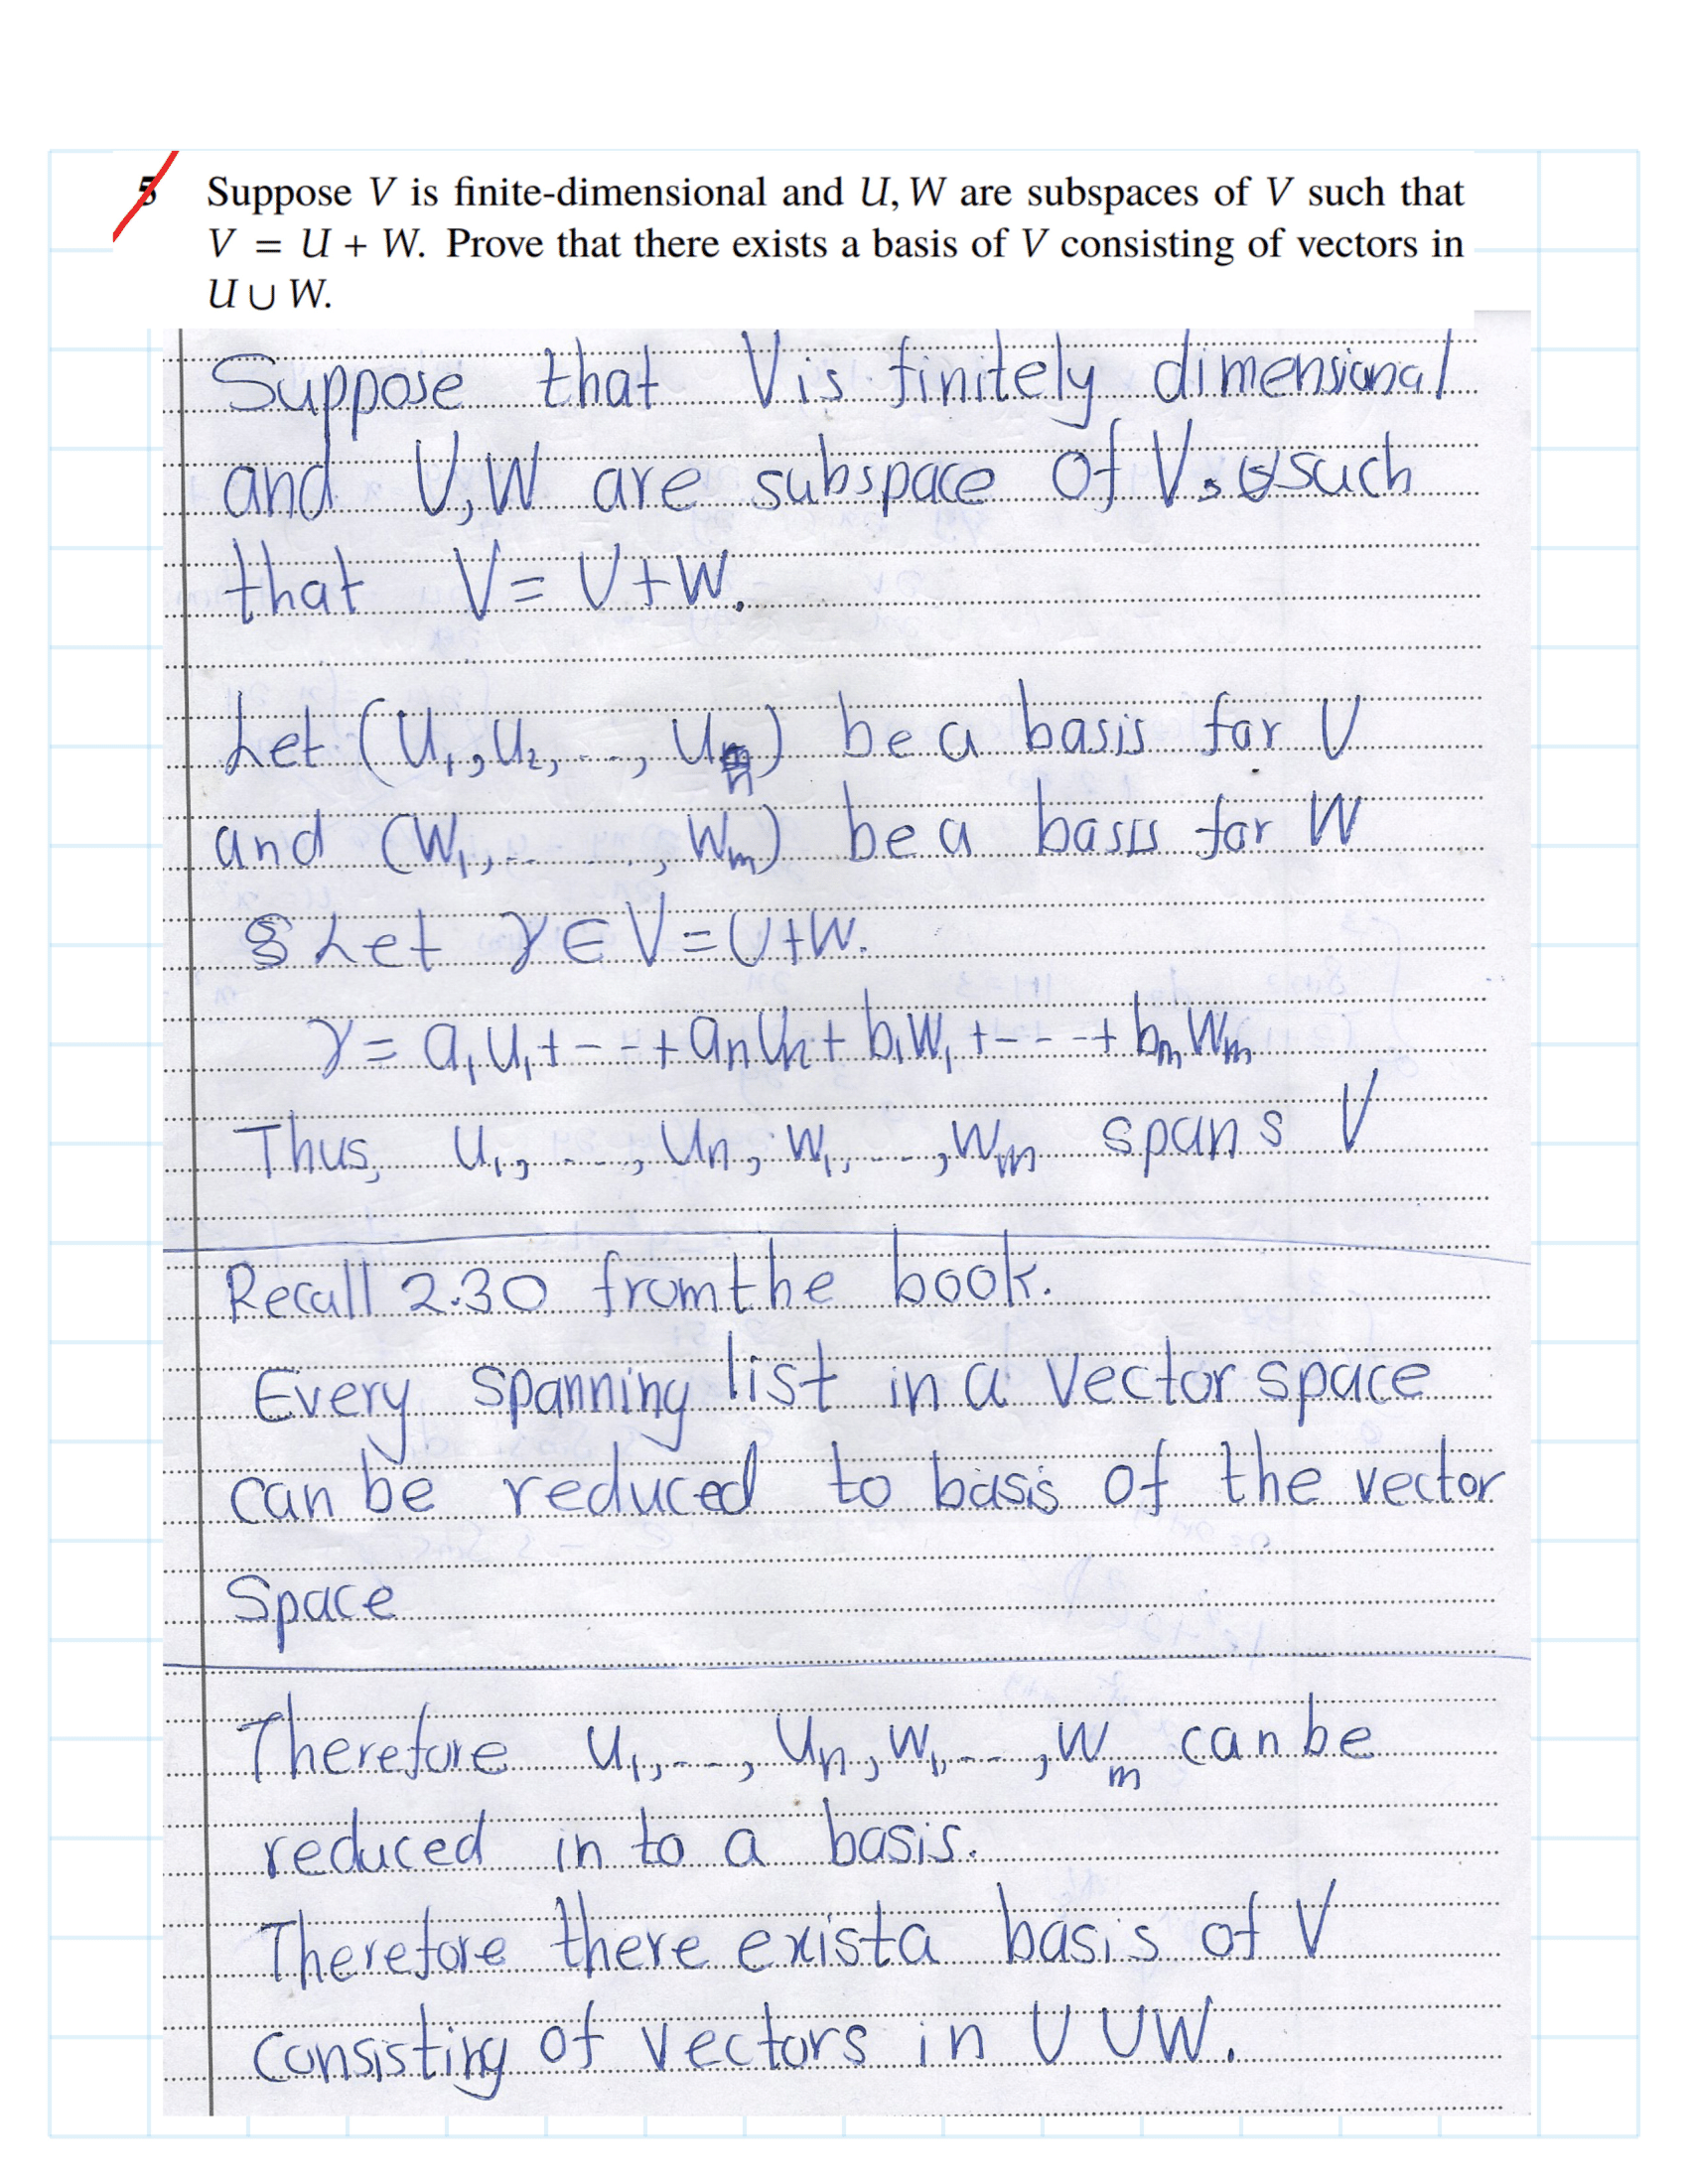 5 Suppose V is finite-dimensional and U, W are subspaces of V such that
V = U + W. Prove that there exists a basis of V consisting of vectors in
U ∪ W.
Suppose that V is finitely dimensional
and U, W are subspace of V, such
that V = U + W.
Let (U₁, U₂, ..., Uₙ) be a basis for U
and (W₁, ..., Wₘ) be a basis for W
Let γ ∈ V = U + W.
γ = a₁U₁ + --- + aₙUₙ + b₁W₁ + --- + bₘWₘ
Thus, U₁, ..., Uₙ, W₁, ..., Wₘ spans V
Recall 2.30 from the book.
Every spanning list in a vector space
can be reduced to basis of the vector
Space
Therefore U₁, ..., Uₙ, W₁, ..., Wₘ can be
reduced in to a basis.
Therefore there exist a basis of V
consisting of vectors in U ∪ W.